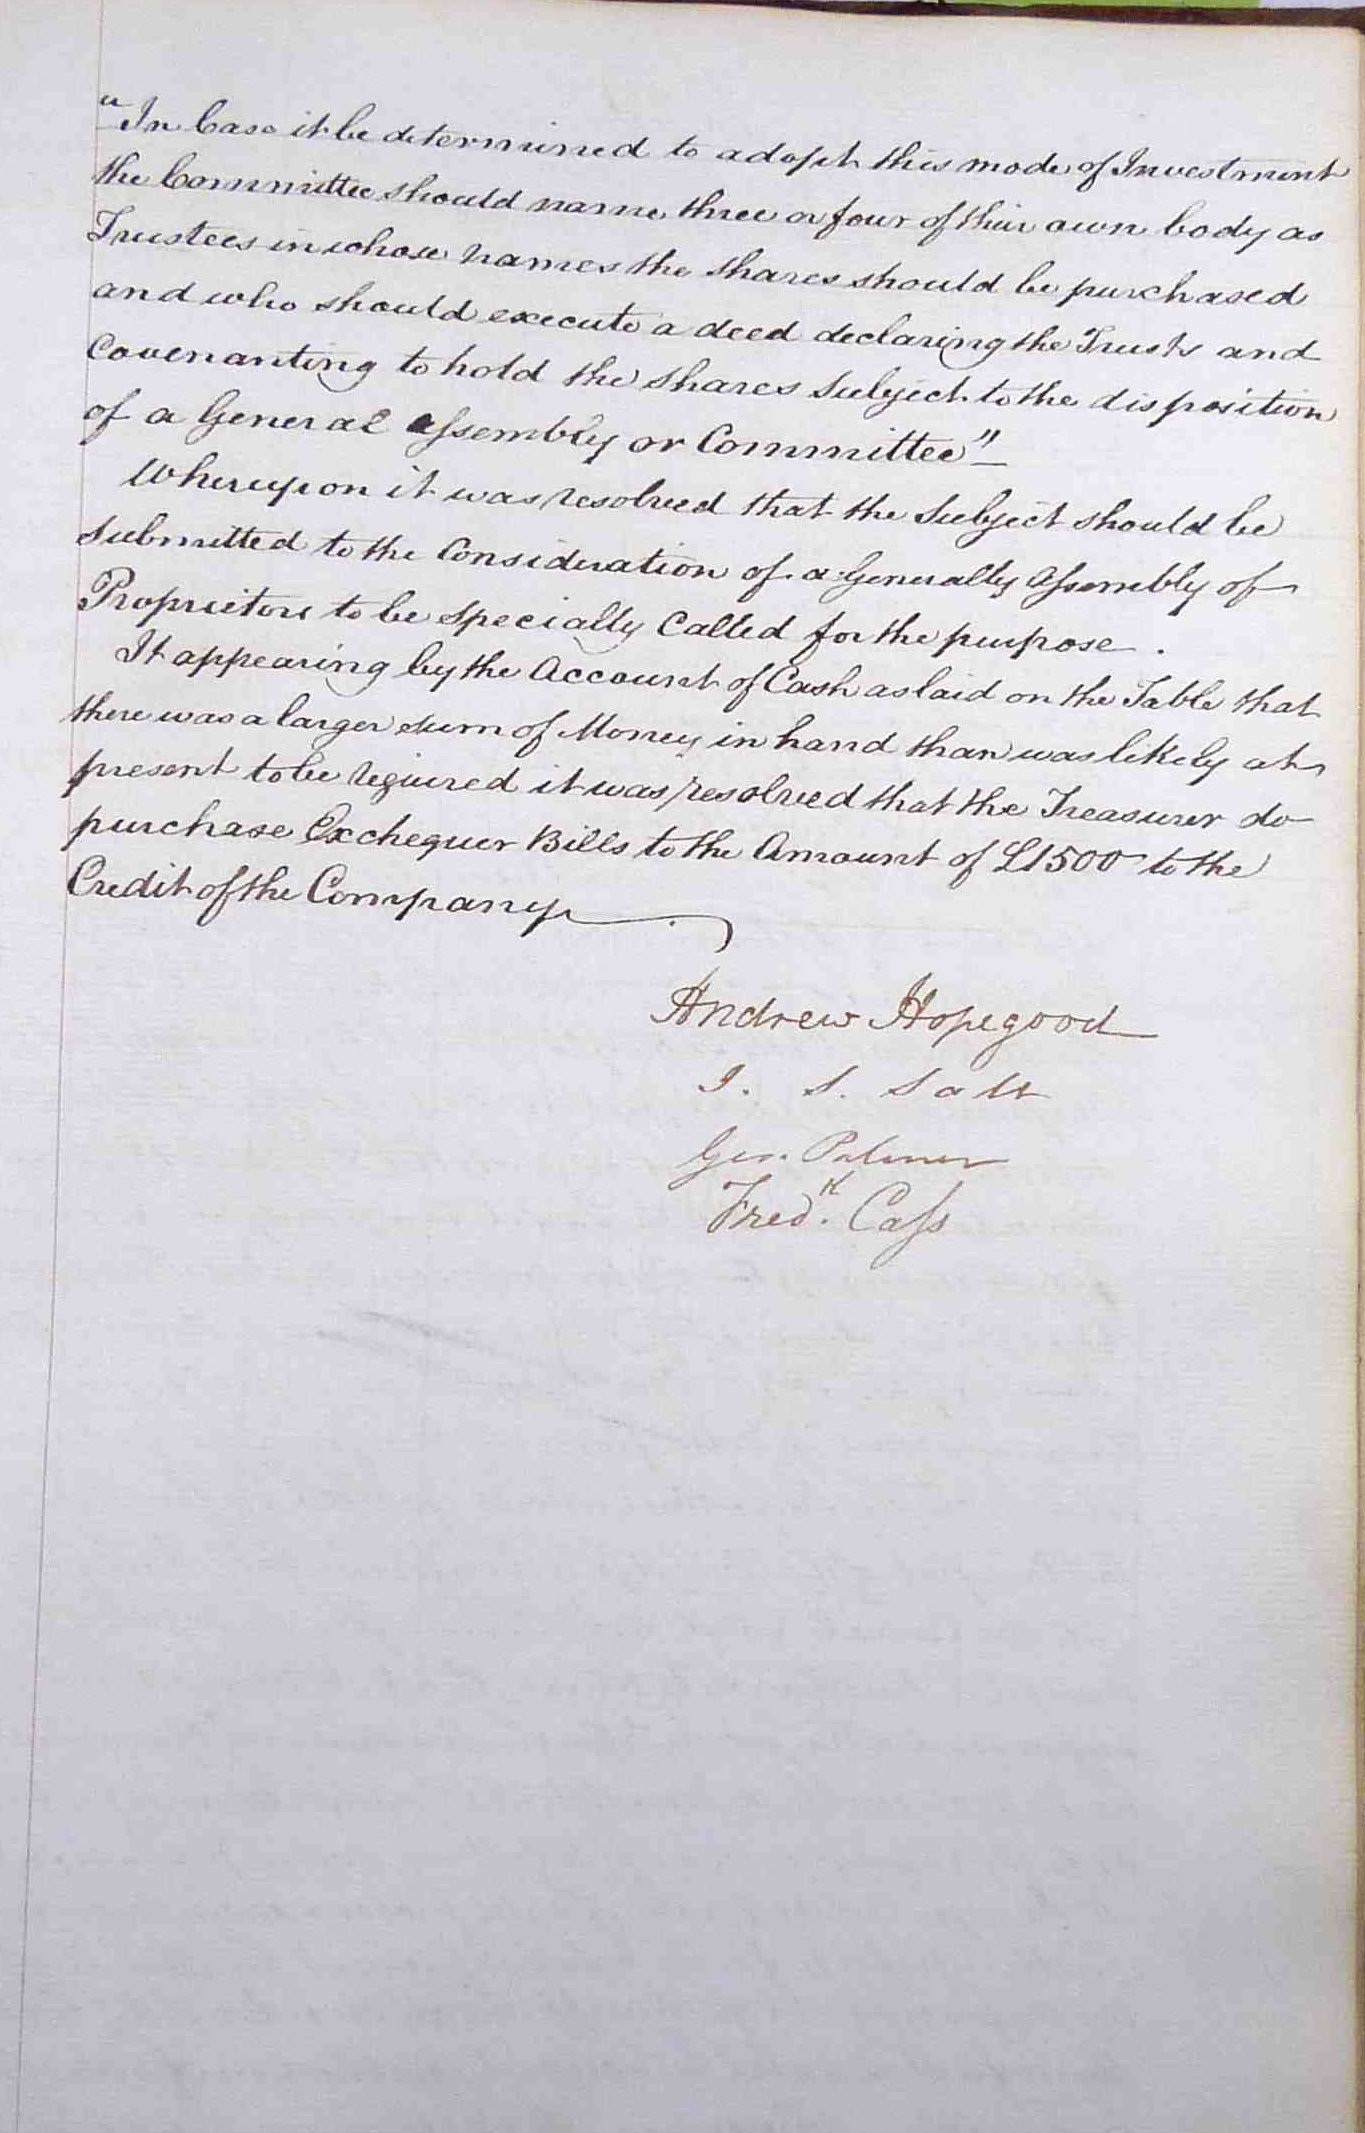 "In Case it be determined to adopt this mode of Investment
the Committee should name three or four of their own body as
Trustees in whose names the shares should be purchased
and who should execute a deed declaring the Trusts and
Covenanting to hold the shares subject to the disposition
of a General Assembly or Committee"
Whereupon it was resolved that the Subject should be
submitted to the Consideration of a Generally Assembly of
Proprietors to be specially Called for the purpose.
It appearing by the Account of Cash as laid on the Table that
there was a larger sum of Money in hand than was likely at
present to be required it was resolved that the Treasurer do
purchase Exchequer Bills to the Amount of £1500 to the
Credit of the Company
Andrew Hopegood
J. S. Salt
Geo. Palmer
Fred.k Cass